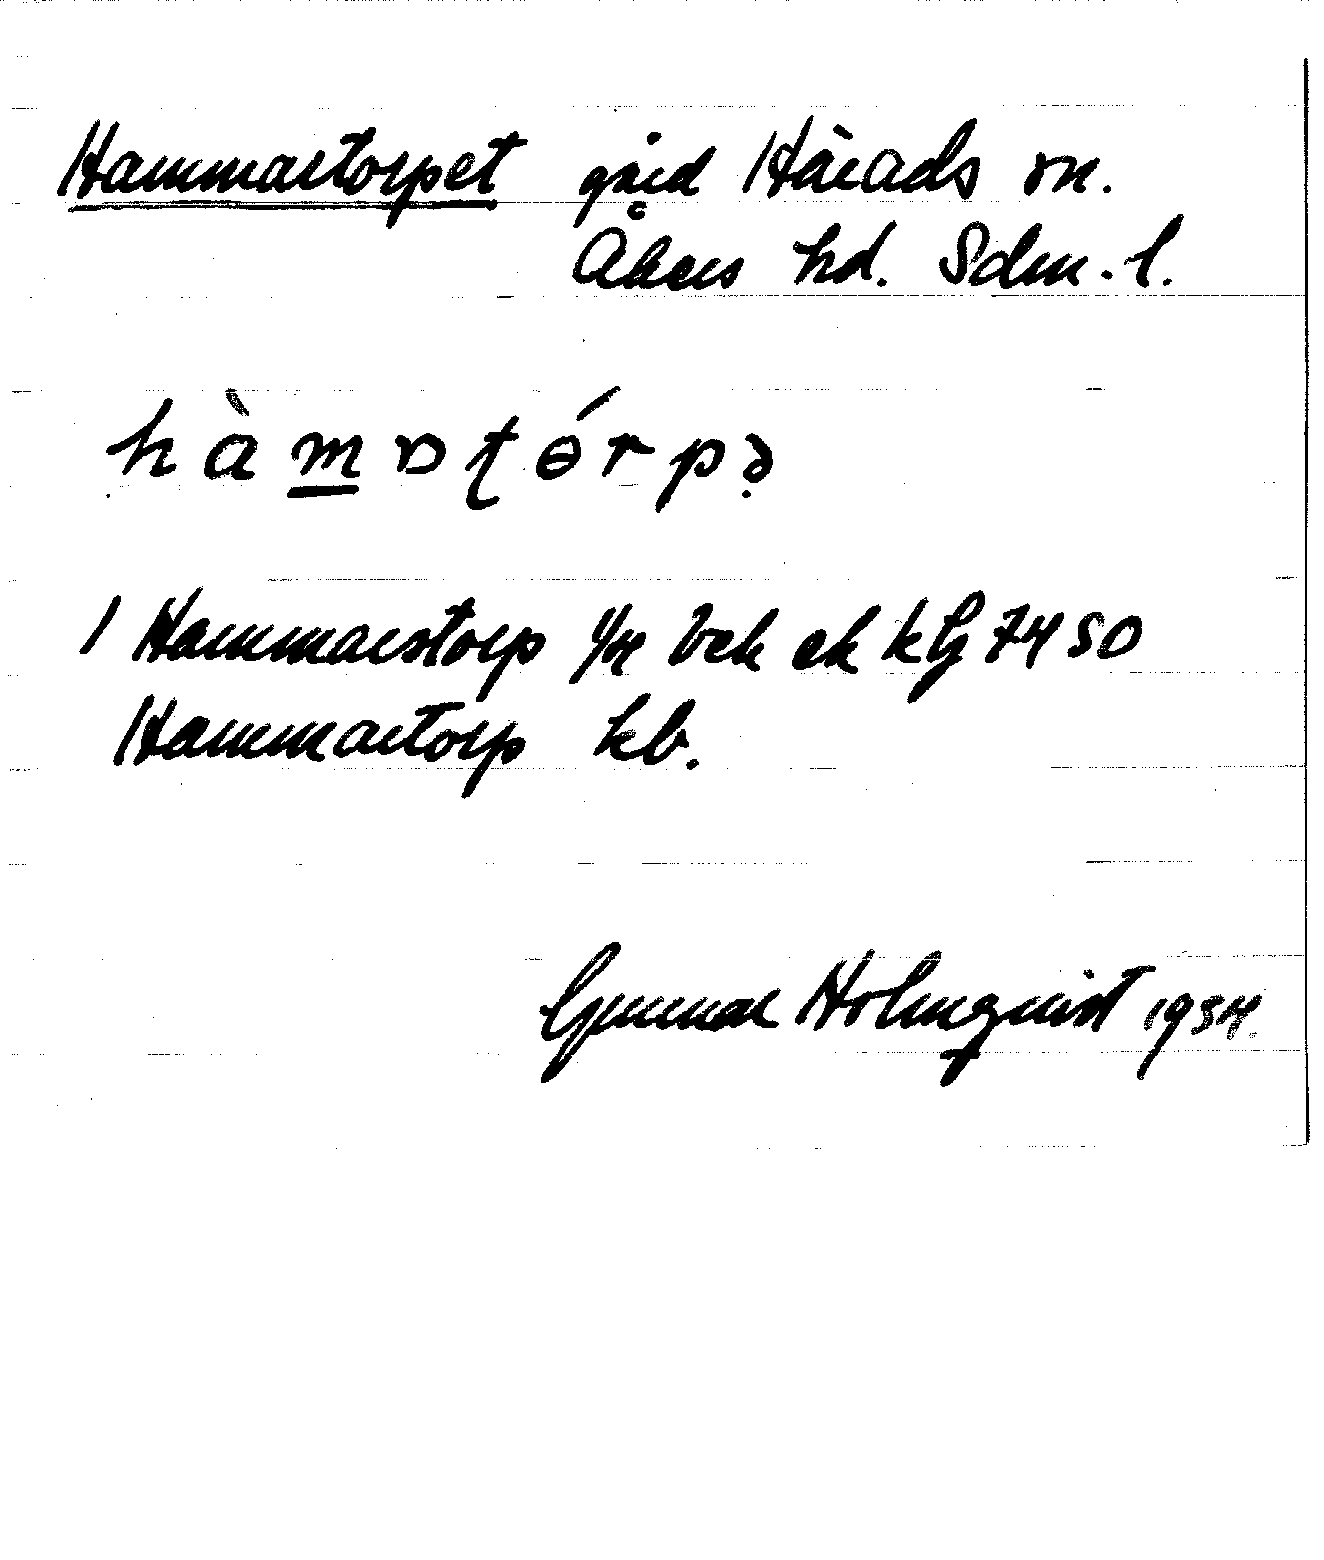 Hammartorpet gård Härads sn.
Åkers hd. Sdm. l.
hàmɒʈɵ́rpə̣
1 Hammarstorp 1/4 kr ek ktg 7450
Hammartorp kb.
Gunnar Holmqvist 1934.